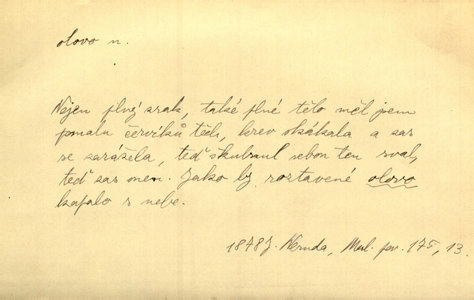 olovo n.
Nejen plný zrak, také plné tělo měl jsem
pomalu červíků těch, krev skákala a zas
se sarážela, teď škubnul sebou ten sval,
teď zas onen. Jako by roztavené olovo
kapalo s nebe.
1878 J. Neruda, Mal. pov. 175, 13.